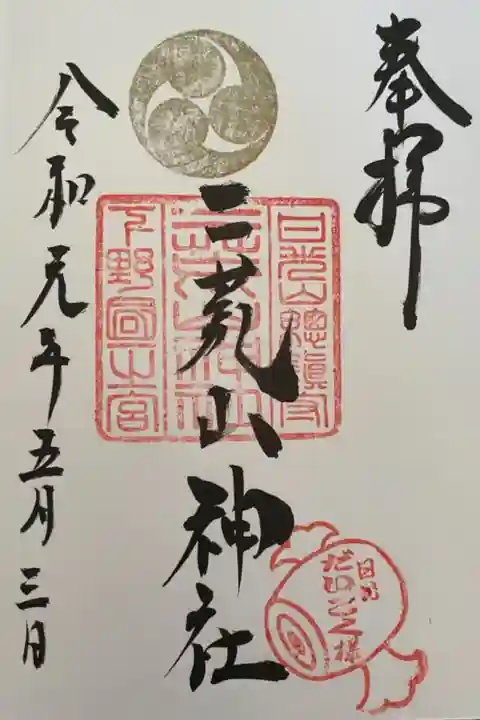 奉拝
二荒山神社
日光山総鎮守
二荒山神社
下野国一之宮
日光
だいこく様
令和元年五月三日